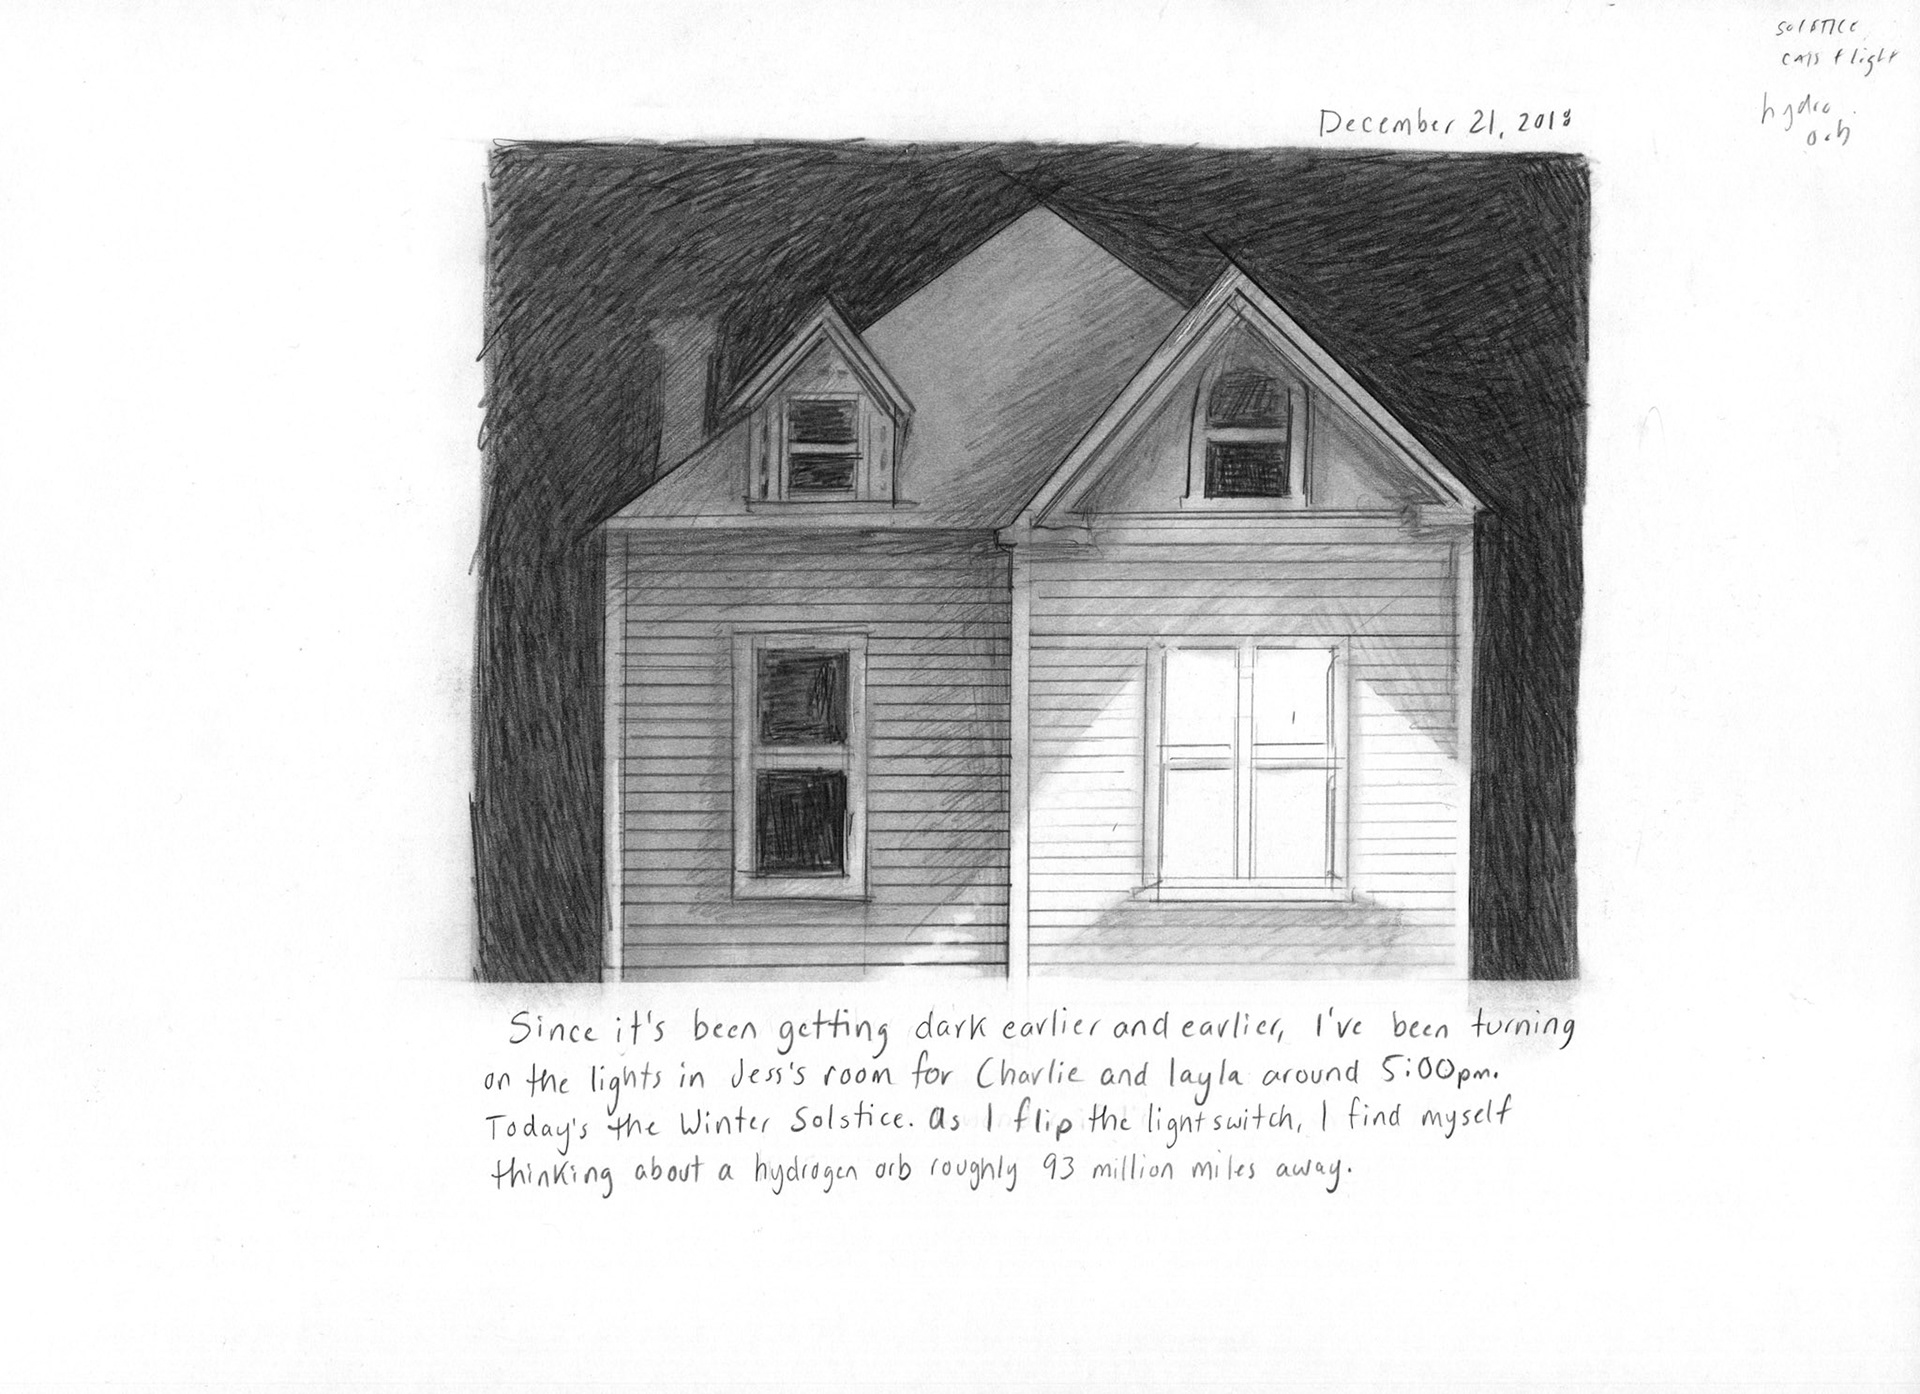 solstice
cats + light
hydro
orb
December 21, 2018
Since it's been getting dark earlier and earlier, I've been turning
on the lights in Jess's room for Charlie and layla around 5:00pm.
Today's the Winter Solstice. as I flip the lightswitch, I find myself
thinking about a hydrogen orb roughly 93 million miles away.